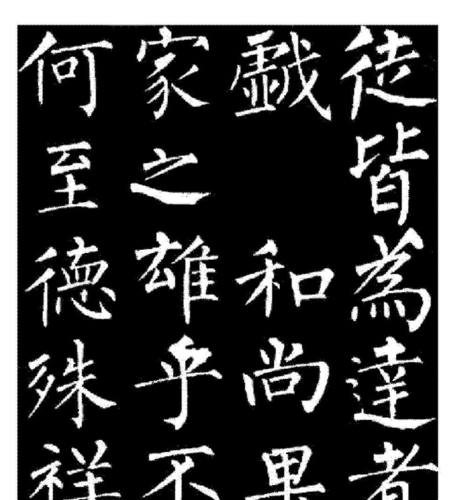 徒皆為達者
戱 和尚果
家之雄乎不
何至德殊祥